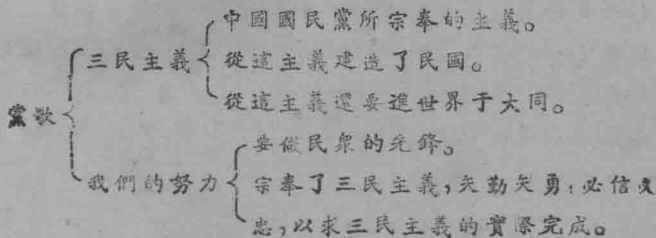 黨歌
三民主義
中國國民黨所宗奉的主義。
從這主義建造了民國。
從這主義還要進世界于大同。
我們的努力
要做民衆的先鋒。
宗奉了三民主義,矢勤矢勇;必信必
忠,以求三民主義的實際完成。